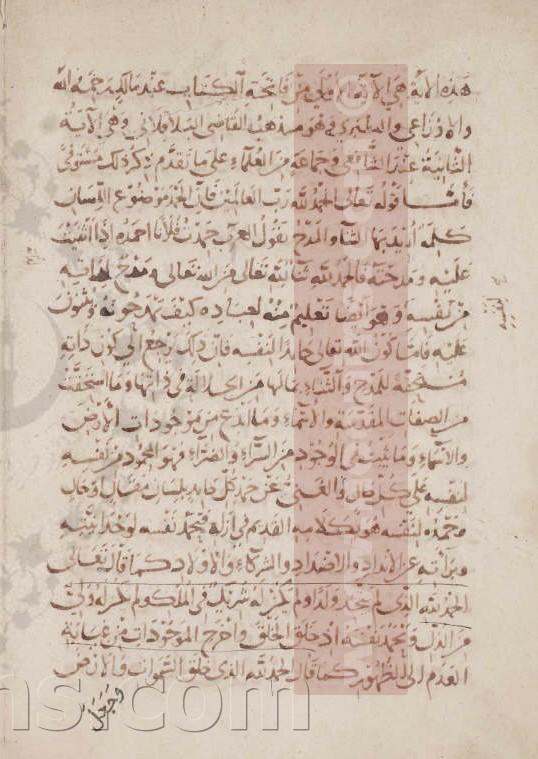 هذه الآية هي الآية الأولى من فاتحة الكتاب عند مالك رحمه الله
والاوزاعي والطبري وهو مذهب القاضي الباقلاني وهي الآية
الثانية عند الشافعي وجماعة من العلماء على ما تقدم ذكر ذلك مستوفى
فأما قوله تعالى الحمد لله رب العالمين فان الحمد موضوع اللسان
كلمة اريد بها الثناء والمدح تقول العرب حمدت فلانا احمده اذا اثنيت
عليه ومدحته فالحمد لله ثنا لله تعالى من الله تعالى ومدح
من نفسه وهو ايضا تعليم منه لعباده كيف يحمدونه ويثنون
عليه فاما كون الله تعالى حامدا لنفسه فان ذلك يرجع الى كون ذاته
مستحقة للمدح والثناء بما لها من الجلالة في ذاتها وما استحقت
من الصفات المقدسة والاسماء وما ابدع من موجودات الارض
والاسماء وما بينه في الوجود من السراء والضراء فهو المحمود من نفسه
لنفسه على كل حال والغني عن حمد كل حامد بلسان مقال او حال
وحمده لنفسه هو بكلامه القديم في ازله فيحمد نفسه لوحدانيته
وبراته عن الانداد والاضداد والشركاء والاولاد كما قال تعالى
الحمد لله الذي لم يتخذ ولدا ولم يكن له شريك في الملك ولم يكن له ولي
من الذل ويحمد نفسه اذ خلق الخلق واخرج الموجودات من غيابة
العدم الى الظهور كما قال الحمد لله الذي خلق السموات والارض
وجعل
ms.com